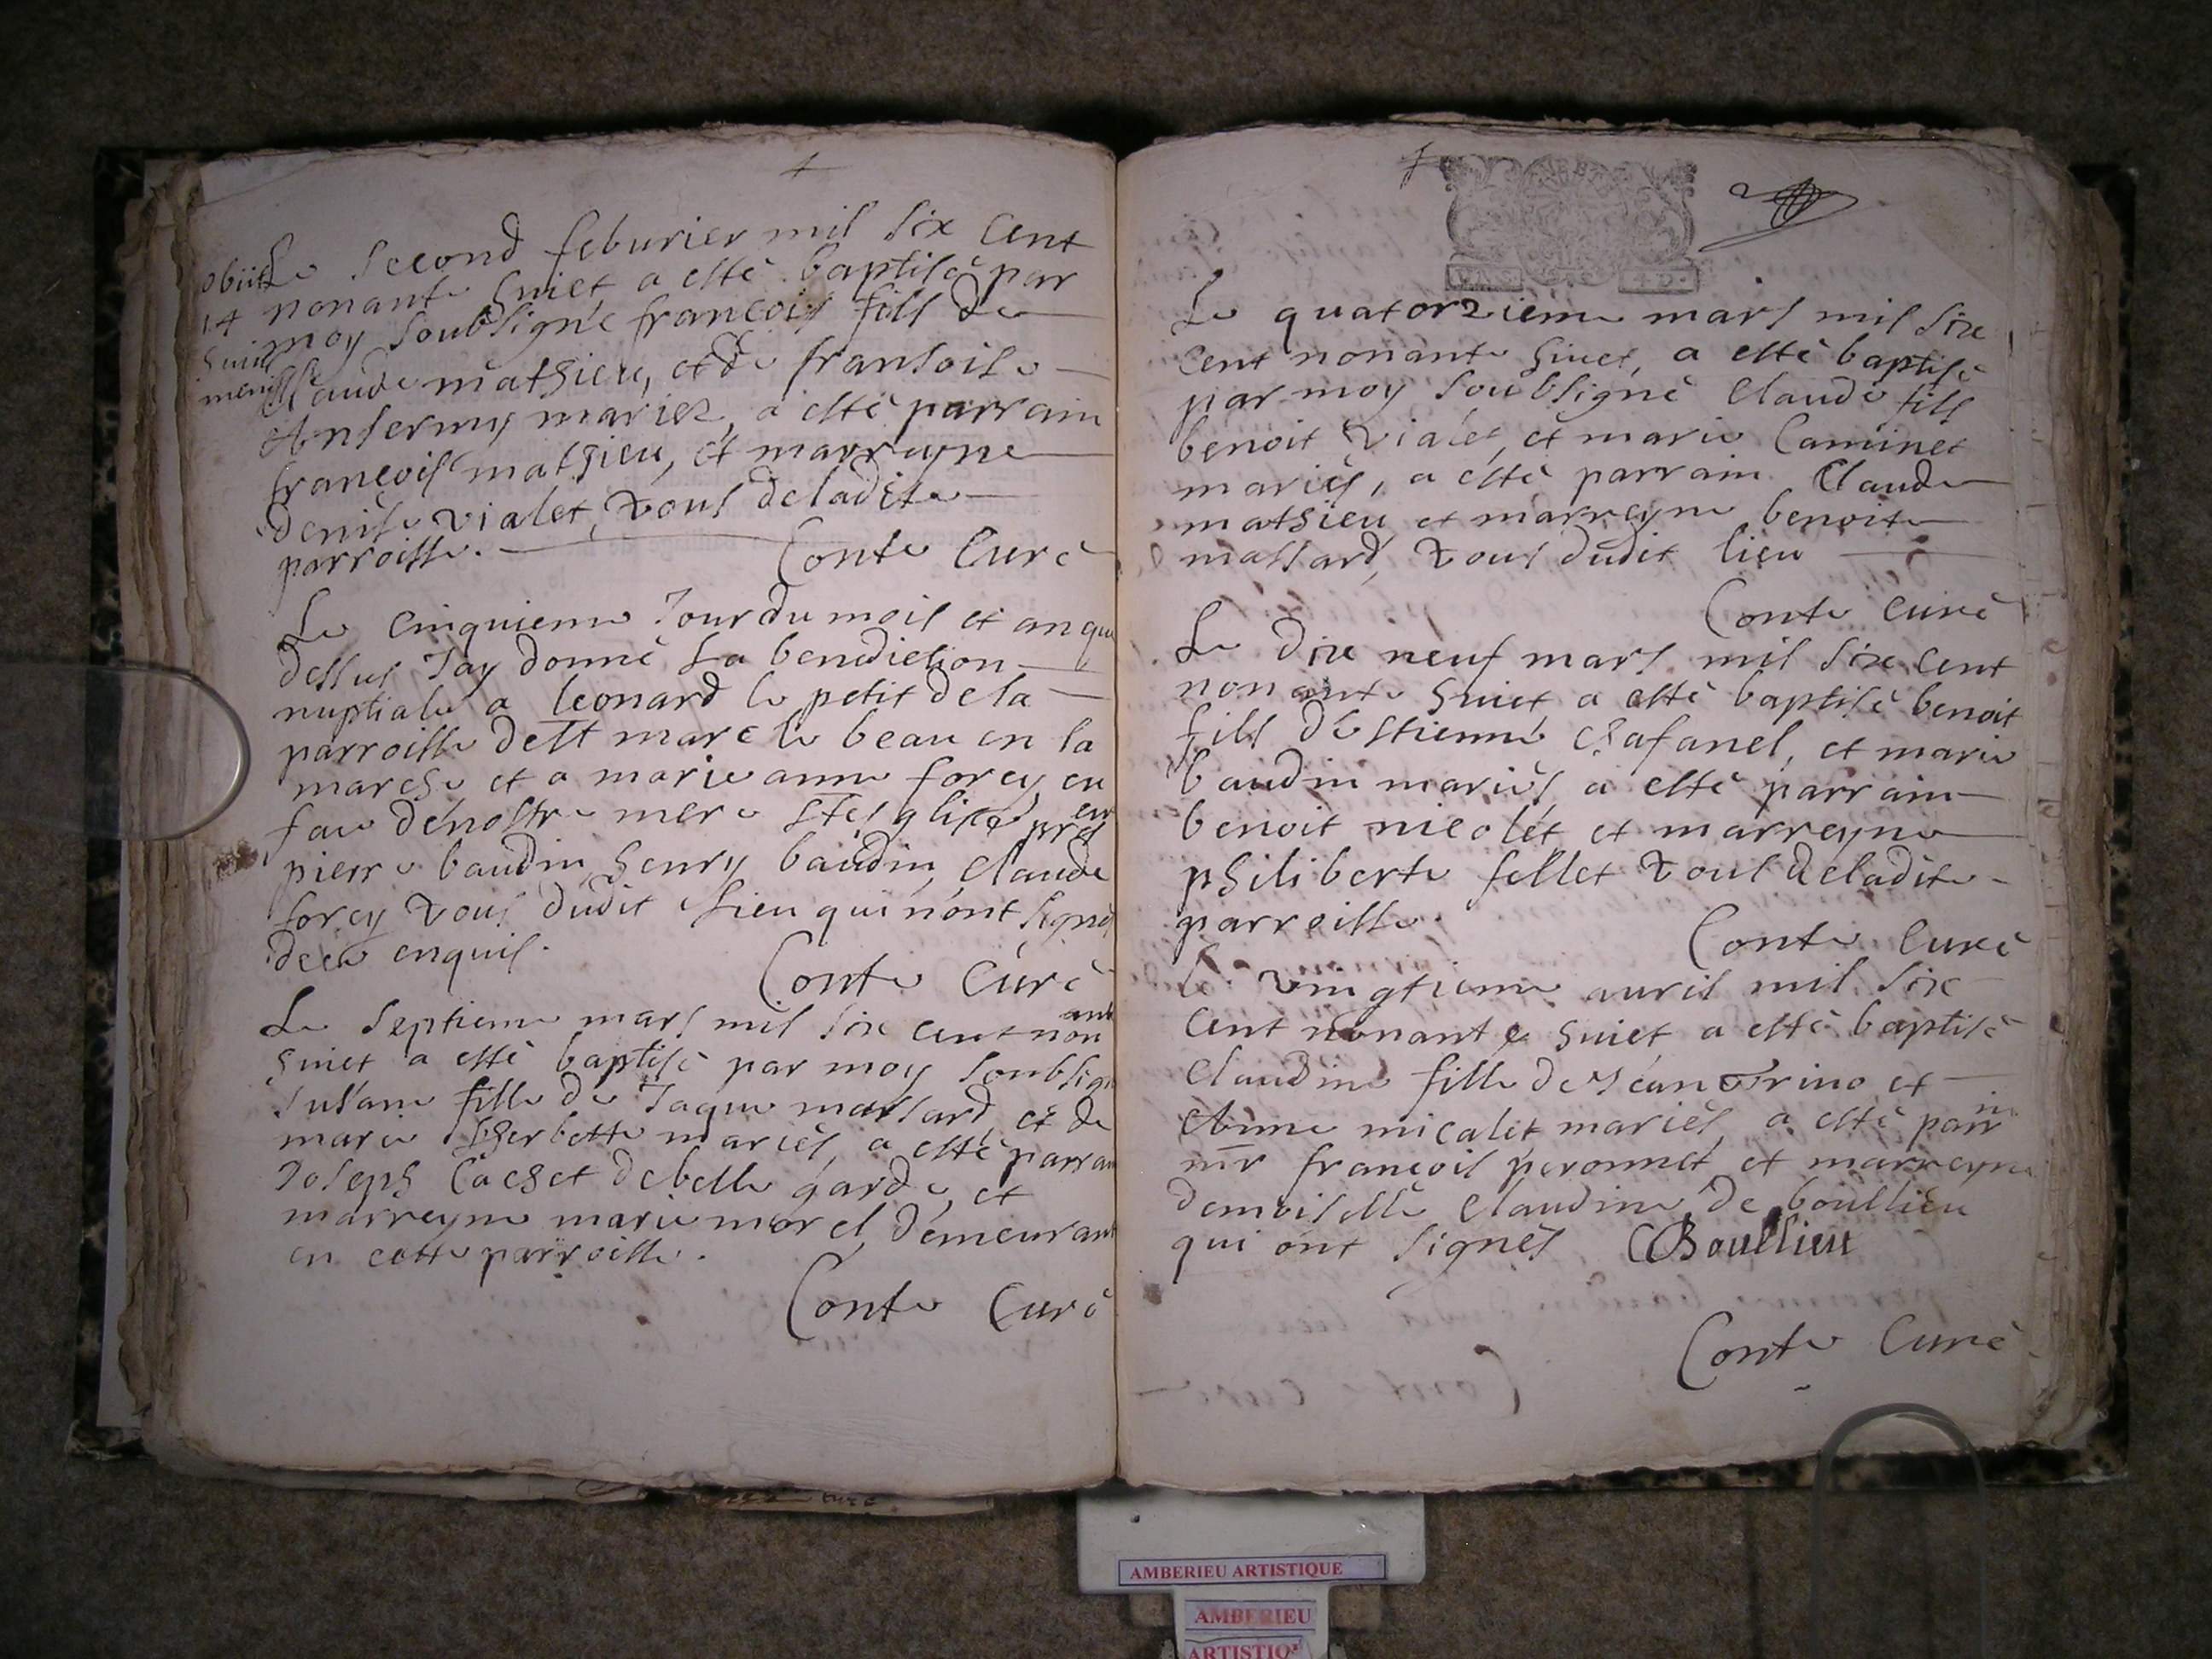 obiit
14
huius
mensis
Le second feburier mil six cent
nonante huict a esté baptisé par
moy soubsigné francois fils de
Claude mathieu, et de fransoise
Ansermy mariez, a esté parrain
francois mathieu, et marrayne
denise vialet, tous deladite
parroisse.
Conte Curé
Le cinquieme Jour du mois et an que
dessus Jay donné La benediction
nuptiale a leonard le petit de la
parroisse de st marc le beau en la
marche et a marie anne forey en
face denostre mere Ste eglise pres
pierre baudin henry baudin, Claude
forey tous dudit Lieu qui nont signé
dece enquis.
Conte Curé
Le septieme mars mil six cent nonante
huict a esté baptisé par moy soubsigné
Susane fille de Jaque massard, et de
marie herbette mariés, a esté parrain
Joseph Cachet debelle garde, et
marreyne marie morel, demeurant
en cette parroisse.
Conte Curé
Le quatorzieme mars mil six
cent nonante huict, a esté baptisé
par moy soubsigné Claude fils
benoit vialet, et marie Caminet
mariés, a esté parrain Claude
mathieu et marreyne benoite
massard, tous dudit lieu
Conte Curé
Le dix neuf mars mil six cent
nonante huict a esté baptisé benoit
fils destienne Chafanel, et marie
baudin mariés, a esté parrain
benoit nicolet et marreyne
philiberte fellet tous deladite
parroisse.
Conte Curé
le vingtieme auril mil six
cent nonante huict a esté baptisé
Claudine fille de Jean Trino et
Anne micalet mariés, a esté parrin
mr francois peronnet et marreyne
demoiselle Claudine de boullieu
qui ont signés CBoullieu
Conte Curé
AMBERIEU ARTISTIQUE
AMBERIEU
ARTISTIQ